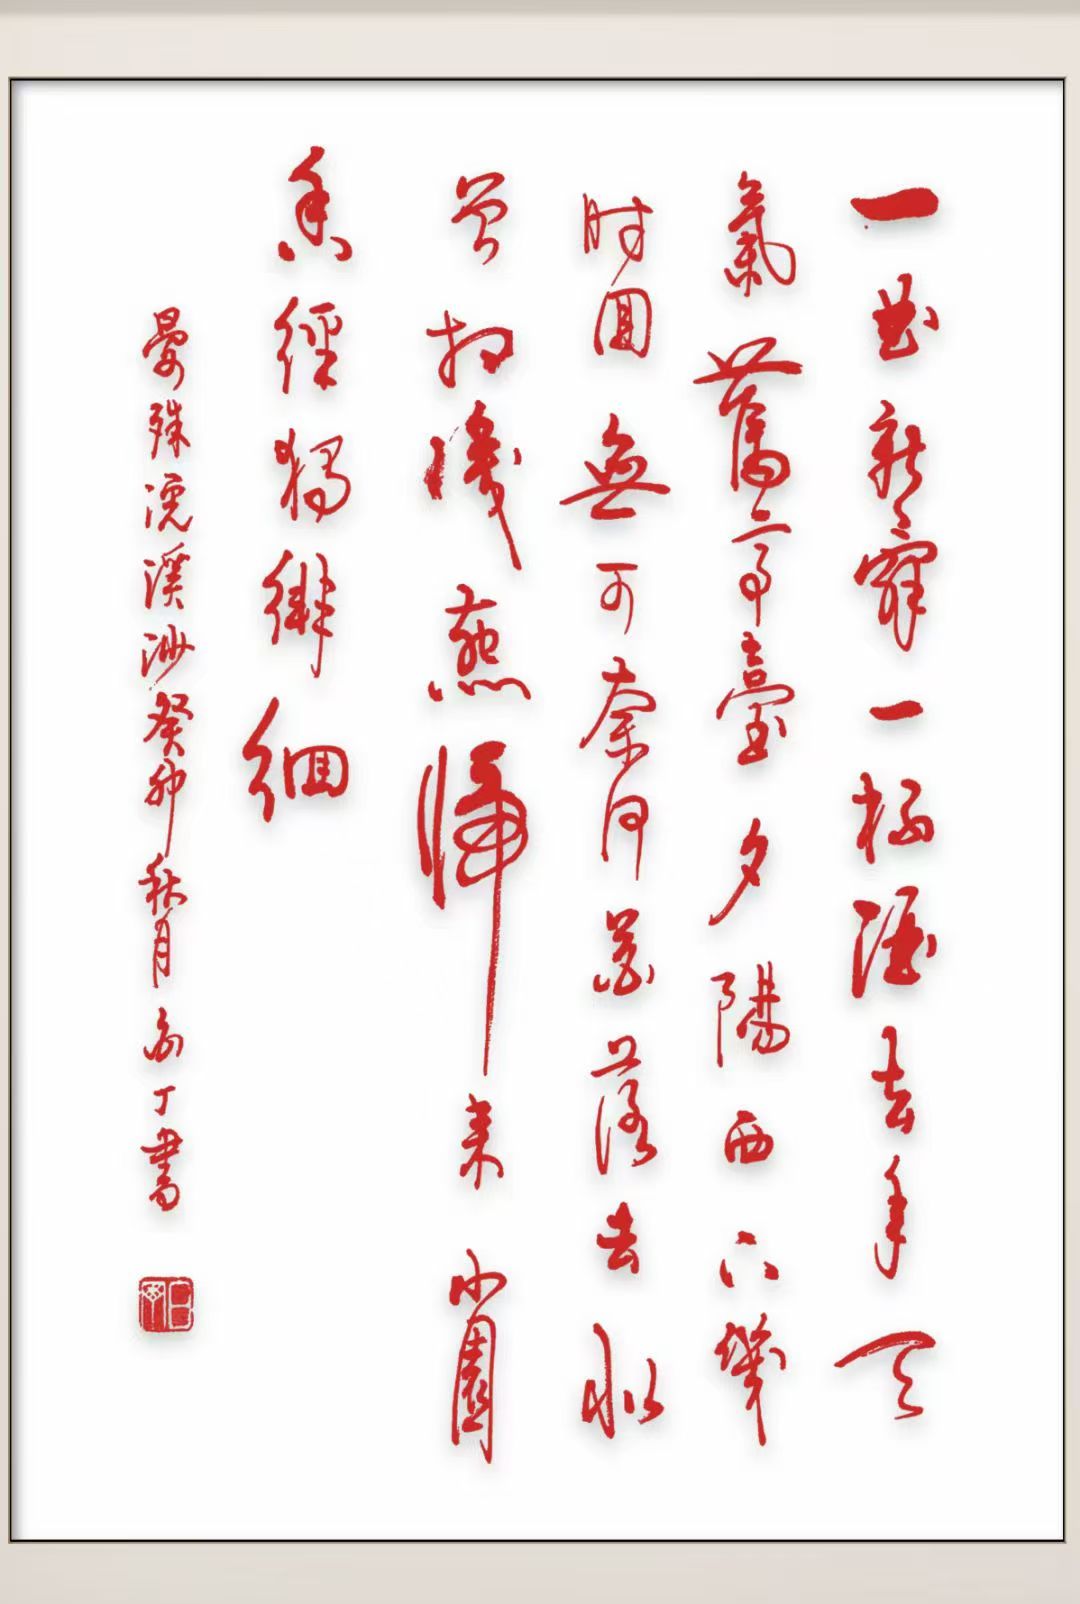 一曲新辭一杯酒去年天
氣舊亭臺夕陽西下幾
时回無可奈何花落去似
曾相識燕歸来小園
香徑獨徘徊
晏殊浣溪沙癸卯秋月丁書